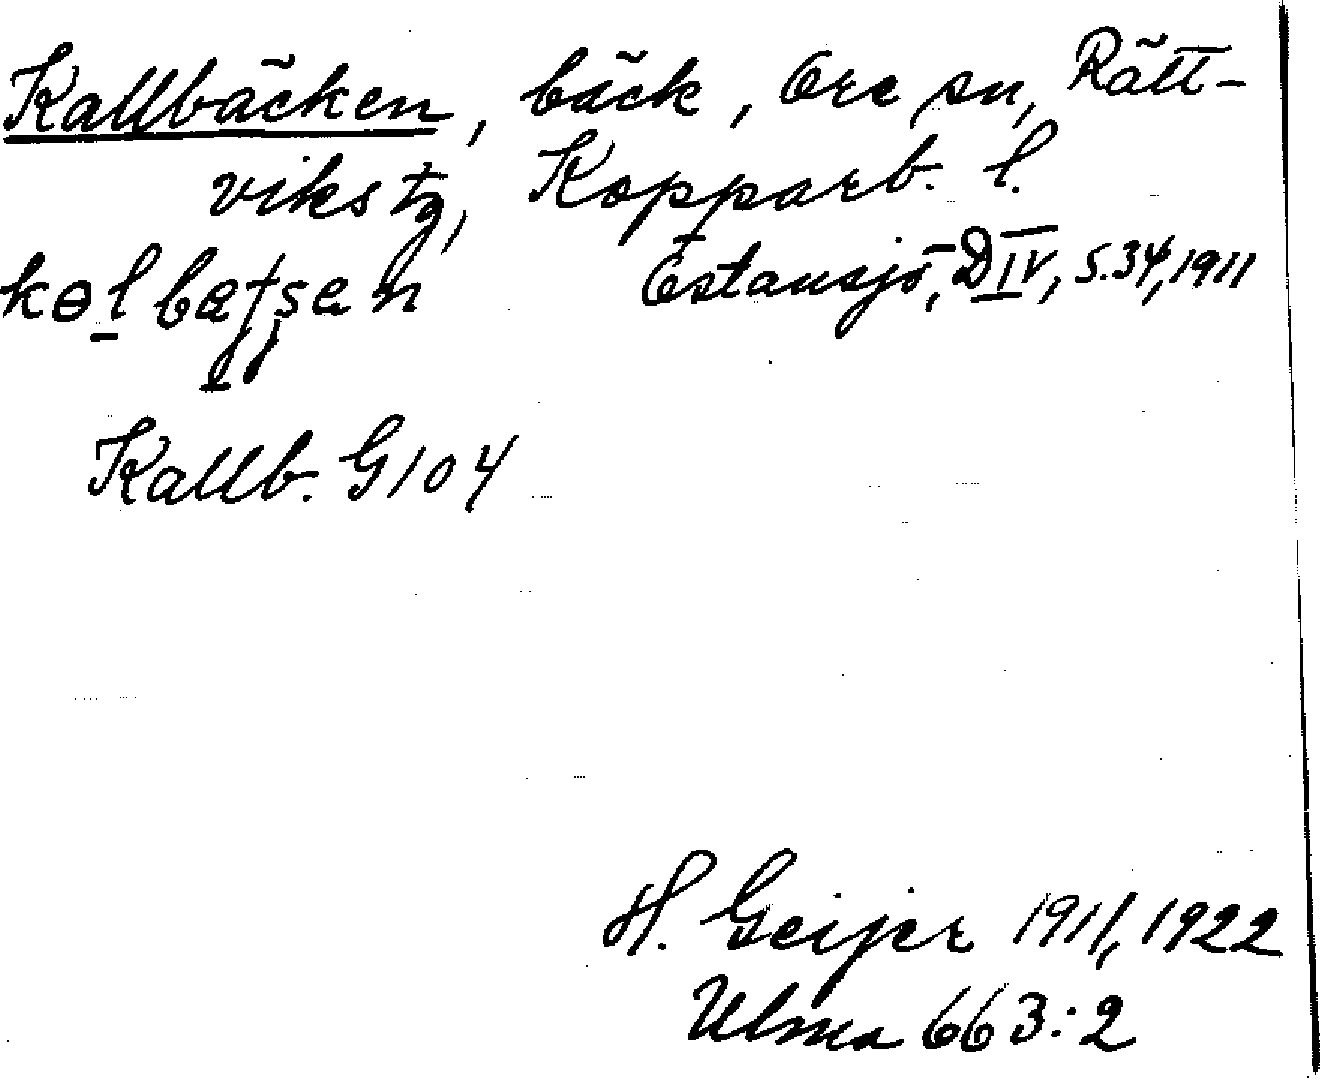 Kallbäcken, bäck, Ore sn, Rätt-
viks tg, Kopparb. l.
Estansjö, D IV, S. 34, 1911
Kallb. G 104
H. Geijer 1911, 1922
Ulma 663:2